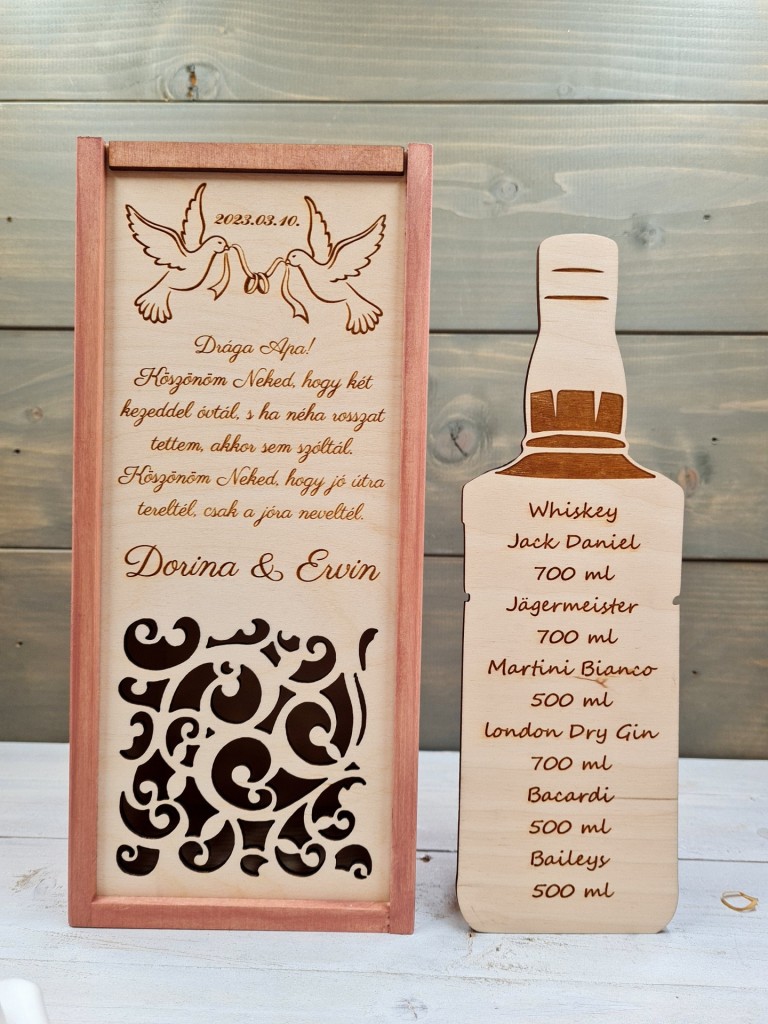 2023.03.10.
Drága Apa!
Köszönöm Neked, hogy két
kezeddel óvtál, s ha néha rosszat
tettem, akkor sem szóltál.
Köszönöm Neked, hogy jó útra
tereltél, csak a jóra neveltél.
Dorina & Ervin
Whiskey
Jack Daniel
700 ml
Jägermeister
700 ml
Martini Bianco
500 ml
london Dry Gin
700 ml
Bacardi
500 ml
Baileys
500 ml